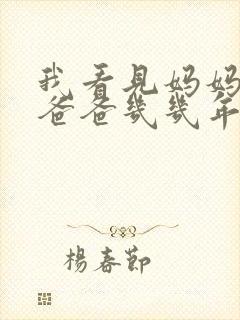 我看見妈妈
爸爸幾幾年
楊春節